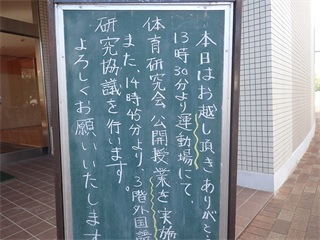 本日はお越し頂きありがとう
13時30分より運動場にて、
体育研究会 公開授業を実施
また、14時45分より、3階外国語
研究協議を行います。
よろしくお願いいたします